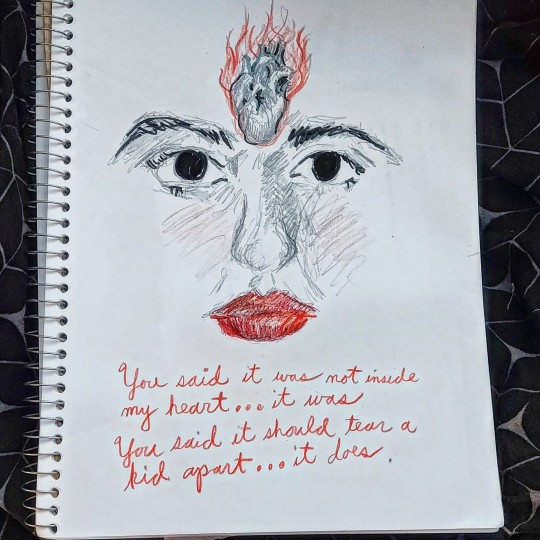 You said it was not inside
my heart... it was
You said it should tear a
kid apart... it does.